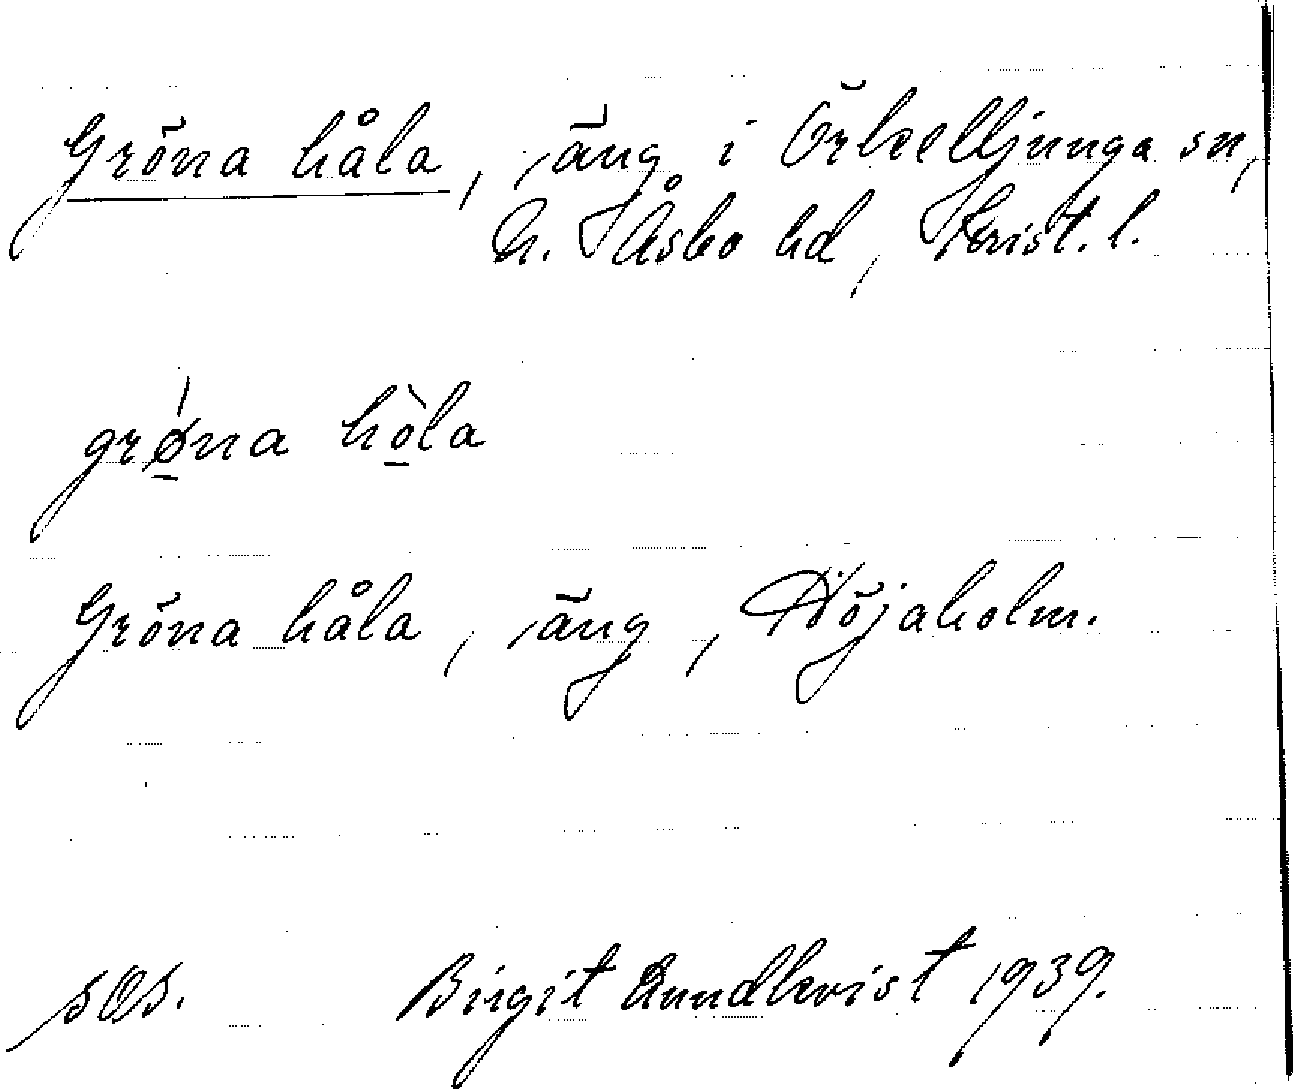 Gröna håla, äng i Örkelljunga sn,
N. Åsbo hd, Krist. l.
grǿ̱na hò̱la
Gröna håla, äng, Höjaholm.
sOs. Birgit Lundkvist 1939.